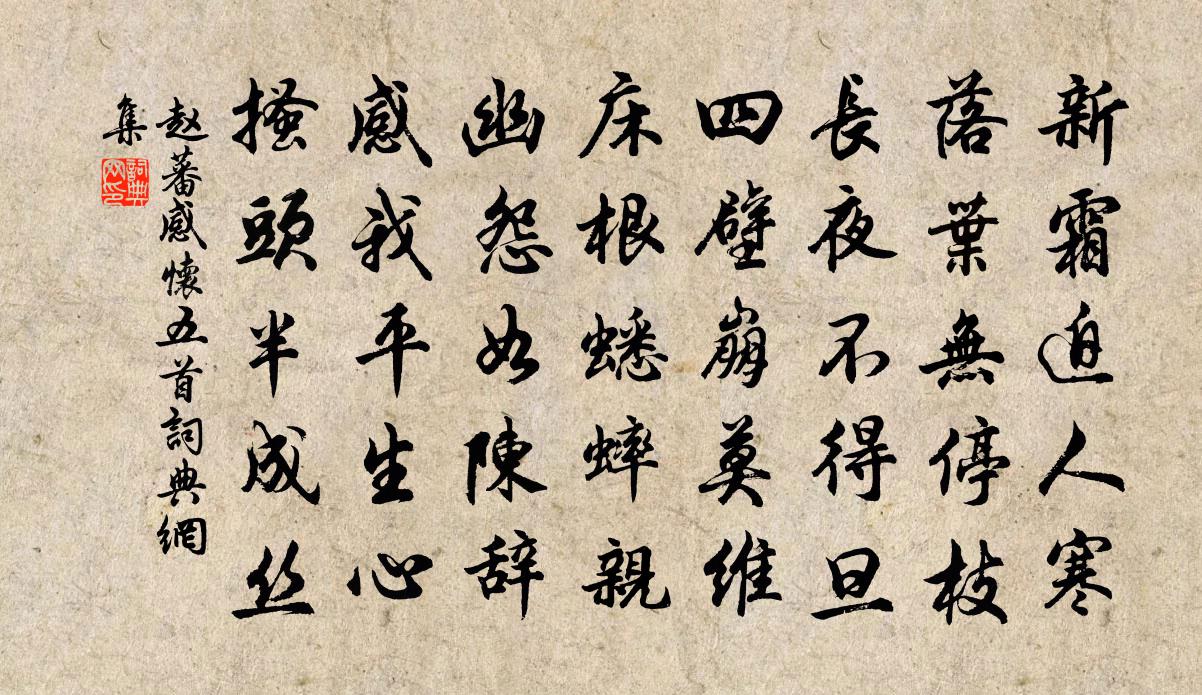 新霜迫人寒
落葉無停枝
長夜不得旦
四壁崩莫维
床根蟋蟀親
幽怨如陳辞
感我平生心
搔頭半成丝
赵蕃感懷五首詞典網
集
詞典
网印